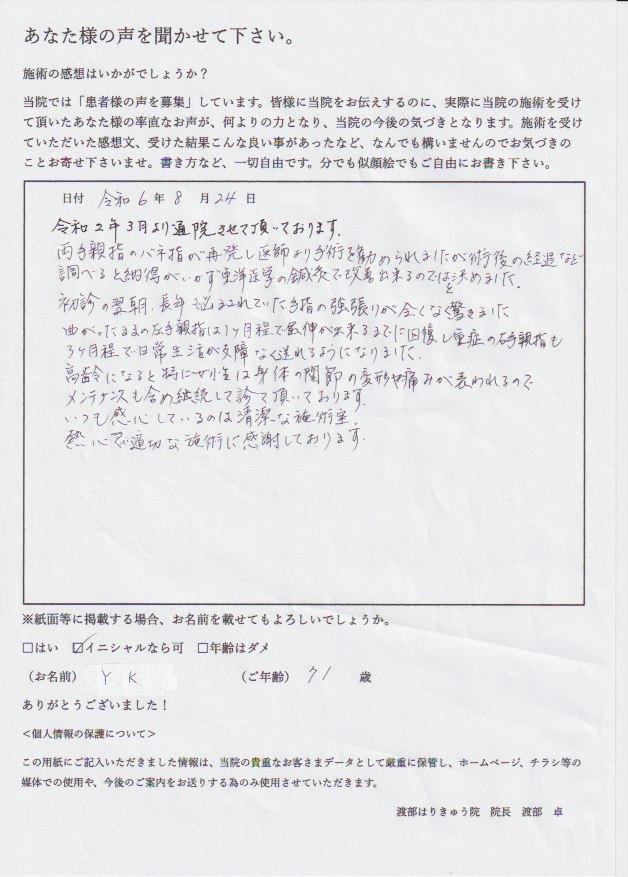 あなた様の声を聞かせて下さい。
施術の感想はいかがでしょうか？
当院では「患者様の声を募集」しています。皆様に当院をお伝えするのに、実際に当院の施術を受け
て頂いたあなた様の率直なお声が、何よりの力となり、当院の今後の気づきとなります。施術を受け
ていただいた感想文、受けた結果こんな良い事があったなど、なんでも構いませんのでお気づきの
ことお寄せ下さいませ。書き方など、一切自由です。分でも似顔絵でもご自由にお書き下さい。
日付 令和6年8月24日
令和2年3月より通院させて頂いております。
両手親指のバネ指が再発し医師より手術を勧められましたが術後の経過など
調べると納得がいかず東洋医学の鍼灸で改善出来るのではと決めました。
初診の翌朝、長年悩まされていた手指の強張りが全くなく驚きました
曲がったままの左手親指は1ヶ月程で屈伸が出来るまでに回復し重症の右手親指も
3ヶ月程で日常生活が支障なく送れるようになりました。
高齢になると特に女性は身体の関節の変形や痛みが表われるので
メンテナンスも含め継続して診て頂いております。
いつも感心しているのは清潔な施術室。
熱心で適切な施術に感謝しております。
※紙面等に掲載する場合、お名前を載せてもよろしいでしょうか。
□はい ☑イニシャルなら可 □年齢はダメ
（お名前） Y K （ご年齢） 71 歳
ありがとうございました！
＜個人情報の保護について＞
この用紙にご記入いただきました情報は、当院の貴重なお客さまデータとして厳重に保管し、ホームページ、チラシ等の
媒体での使用や、今後のご案内をお送りする為のみ使用させていただきます。
渡部はりきゅう院 院長 渡部 卓